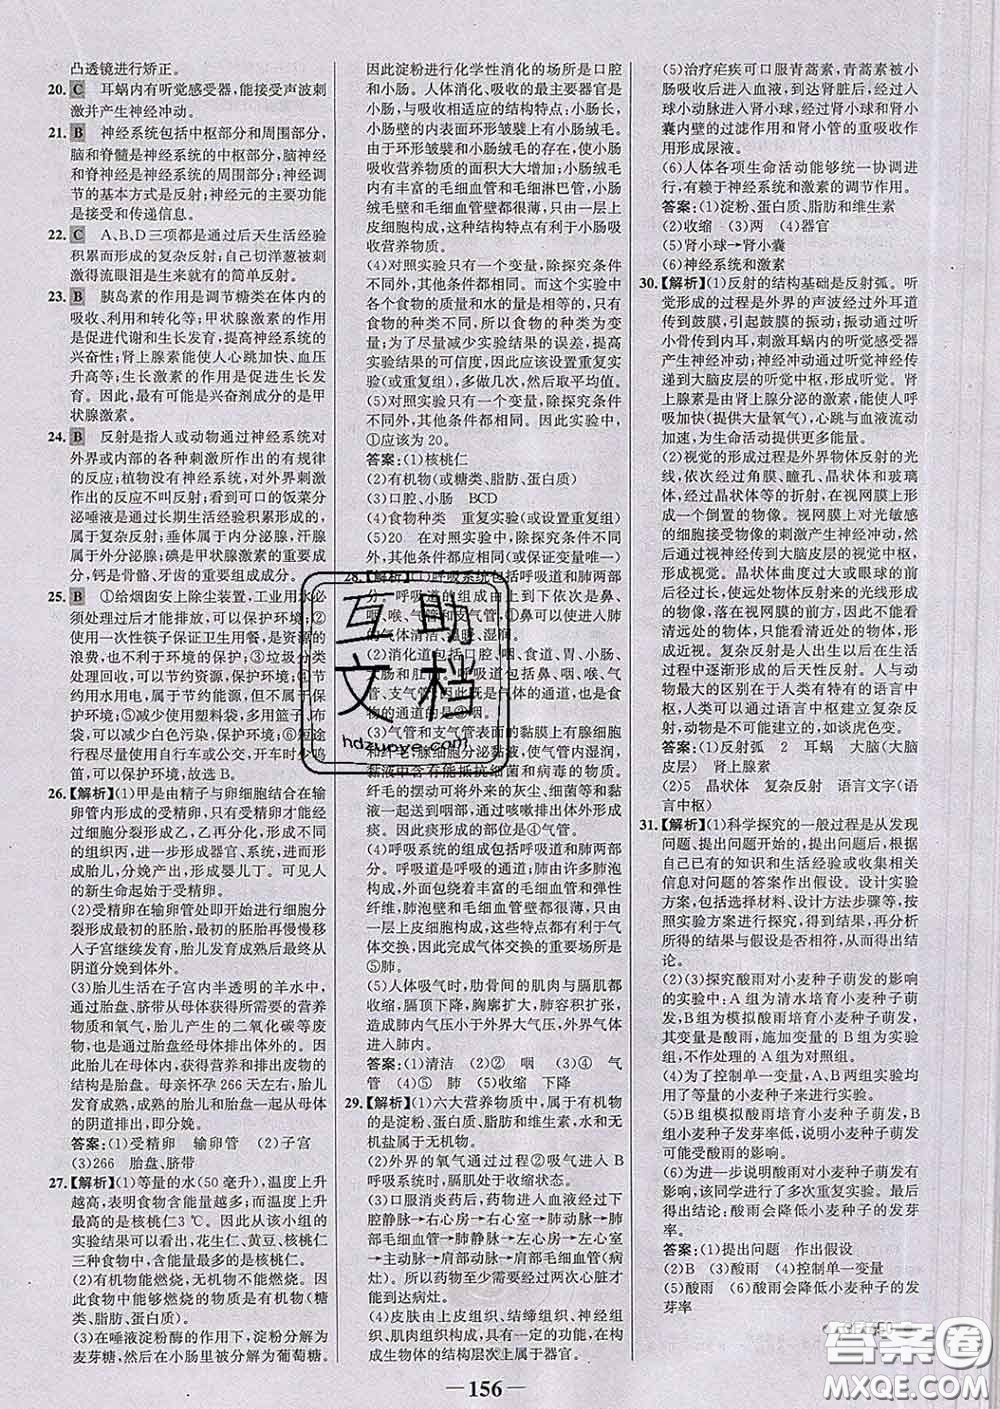 凸透镜进行矫正。
20. C 耳蜗内有听觉感受器,能接受声波刺
激并产生神经冲动。
21. B 神经系统包括中枢部分和周围部分,
脑和脊髓是神经系统的中枢部分,脑神经
和脊神经是神经系统的周围部分;神经调
节的基本方式是反射;神经元的主要功能
是接受和传递信息。
22. C A、B、D三项都是通过后天生活经验
积累而形成的复杂反射;自己切洋葱被刺
激得流眼泪是生来就有的简单反射。
23. B 胰岛素的作用是调节糖类在体内的
吸收、利用和转化等;甲状腺激素的作用
是促进代谢和生长发育,提高神经系统的
兴奋性;肾上腺素能使人心跳加快、血压
升高等;生长激素的作用是促进生长发
育。因此,最有可能是兴奋剂成分的是甲
状腺激素。
24. B 反射是指人或动物通过神经系统对
外界或内部的各种刺激所作出的有规律
的反应;植物没有神经系统,对外界刺激
作出的反应不叫反射;看到可口的饭菜分
泌唾液是通过长期生活经验积累形成的,
属于复杂反射;垂体属于内分泌腺,汗腺
属于外分泌腺;碘是甲状腺激素的重要成
分,钙是骨骼、牙齿的重要组成成分。
25. B ①给烟囱安上除尘装置,工业用水必
须处理过后才能排放,可以保护环境;②
使用一次性筷子保证卫生用餐,是资源的
浪费,也不利于环境的保护;③垃圾分类
处理回收,可以节约资源,保护环境;④节
约用水用电,属于节约能源,有利于保护
环境;⑤减少使用塑料袋,多用篮子、布
袋,可以减少白色污染,保护环境;⑥短途
行程尽量使用自行车或公交,开车时少鸣
笛,可以保护环境,故选B。
26.【解析】(1)甲是由精子与卵细胞结合在输
卵管内形成的受精卵,只有受精卵才能经
过细胞分裂形成乙,乙再分化,形成不同
的组织丙,进一步形成器官、系统,进而形
成胎儿,分娩产出,形成婴儿丁。可见人
的新生命起始于受精卵。
(2)受精卵在输卵管处即开始进行细胞分
裂形成最初的胚胎,最初的胚胎再慢慢移
入子宫继续发育,胎儿发育成熟后最终从
阴道分娩到体外。
(3)胎儿生活在子宫内半透明的羊水中,
通过胎盘、脐带从母体获得所需要的营养
物质和氧气,胎儿产生的二氧化碳等废
物,也是通过胎盘经母体排出体外的。因
此胎儿发育过程中,母体与胎儿进行物质
的结构是胎盘。母亲怀孕266天左右,胎
儿发育成熟,成熟的胎儿和胎盘一起从母体
的阴道排出,即分娩。
答案:(1)受精卵 输卵管 (2)子宫
(3)266 胎盘、脐带
27.【解析】(1)等量的水(50毫升),温度上升
越高,表明食物含能量越多;而温度上升
最高的是核桃仁3℃。因此从该小组的
实验结果可以看出,花生仁、黄豆、核桃仁
三种食物中,含能量最多的是核桃仁。
(2)有机物能燃烧,无机物不能燃烧。因
此食物中能够燃烧的物质是有机物(糖
类、脂肪、蛋白质)。
(3)在唾液淀粉酶的作用下,淀粉分解为
麦芽糖,然后在小肠里被分解为葡萄糖。
因此淀粉进行化学性消化的场所是口腔
和小肠。人体消化、吸收的最主要器官是
小肠,与吸收相适应的结构特点:小肠长;
小肠的内表面环形皱襞上有小肠绒毛。
由于环形皱襞和小肠绒毛的存在,使小肠
吸收营养物质的面积大大增加;小肠绒毛
内有丰富的毛细血管和毛细淋巴管,小肠
绒毛壁和毛细血管壁都很薄,只由一层上
皮细胞构成,这种结构特点有利于小肠吸
收营养物质。
(4)对照实验只有一个变量,除探究条件
不同外,其他条件都相同。而这个实验中
各个食物的质量和水的量是相等的,只有
食物的种类不同,所以食物的种类为变
量;为了尽量减少实验结果的误差,提高
实验结果的可信度,因此应该设置重复实
验(或重复组),多做几次,然后取平均值。
(5)对照实验只有一个变量,除探究条件
不同外,其他条件都相同。因此实验中,
①应该为20。
答案:(1)核桃仁
(2)有机物(或糖类、脂肪、蛋白质)
(3)口腔、小肠 BCD
(4)食物种类 重复实验(或设置重复组)
(5)20 在对照实验中,除了实验条件不同
外,其他条件都应相同(或保证变量唯一)
28.【解析】(1)呼吸系统包括呼吸道和肺两部
分;呼吸道的组成由上到下依次是鼻、
咽、喉、气管和支气管,①鼻可以使进入肺
的气体清洁、温暖、湿润。
(2)消化道包括口腔、咽、食道、胃、小肠、大肠
和肛门,呼吸道包括鼻、咽、喉、气
管、支气管,因此既是气体的通道,也是食
物的通道的是②咽。
(3)气管和支气管表面的黏膜上有腺细胞
和纤毛,腺细胞分泌黏液,使气管内湿润,
黏液中含有能抵抗细菌和病毒的物质。
纤毛的摆动可将外来的灰尘、细菌等和黏
液一起送到咽部,通过咳嗽排出体外形成
痰。因此痰形成的部位是④气管。
(4)呼吸系统的组成包括呼吸道和肺,肺
是呼吸系统的主要器官;肺由许多肺泡
构成,肺泡外缠绕着丰富的毛细血管和弹性
纤维,肺泡壁和毛细血管壁都很薄,只由
一层上皮细胞构成,这些特点都有利于气
体交换,因此完成气体交换的重要场所是
⑤肺。
(5)人体吸气时,肋骨间的肌肉与膈肌都
收缩,膈顶下降,胸廓扩大,肺也随着扩
张,造成肺内气压小于外界大气压,外界气体
进入肺内。
答案:(1)清洁 (2)② 咽 (3)④ 气
管 (4)⑤ 肺 (5)收缩 下降
29.【解析】(1)六大营养物质中,属于有机物
的是淀粉、蛋白质、脂肪和维生素,水和无
机盐属于无机物。
(2)外界的氧气通过过程②吸气进入B
呼吸系统时,膈肌处于收缩状态。
(3)口服消炎药后,药物进入血液经过下
腔静脉→右心房→右心室→肺动脉→肺
部毛细血管→肺静脉→左心房→左心室
→主动脉→肩部动脉→肩部毛细血管(病
灶)。所以药物至少需要经过两次心脏才
能到达病灶。
(4)皮肤由上皮组织、结缔组织、神经组
织、肌肉组织构成,具有一定的功能,在构
成生物体的结构层次上属于器官。
(5)治疗疟疾可口服青蒿素,青蒿素从
小肠吸收后进入血液,到达肾脏后,经过入
球小动脉进入肾小球,经过肾小球和肾小
囊内壁的过滤作用和肾小管的重吸收作
用形成尿液。
(6)人体各项生命活动能够统一协调进
行,有赖于神经系统和激素的调节作用。
答案:(1)淀粉、蛋白质、脂肪和维生素
(2)收缩 (3)两 (4)器官
(5)肾小球→肾小囊
(6)神经系统和激素
30.【解析】(1)反射的结构基础是反射弧。听
觉形成的过程是外界的声波经过外耳道
传到鼓膜,引起鼓膜的振动;振动通过听
小骨传到内耳,刺激耳蜗内的听觉感受器
产生神经冲动;神经冲动通过听觉神经传
递到大脑皮层的听觉中枢,形成听觉。肾
上腺素是由肾上腺分泌的激素,能使人呼
吸加快(提供大量氧气),心跳与血液流动
加速,为生命活动提供更多能量。
(2)视觉的形成过程是外界物体反射的
光线,依次经过角膜、瞳孔、晶状体和玻璃
体,并经过晶状体等的折射,在视网膜上形
成一个倒置的物像。视网膜上对光敏感
的细胞接受物像的刺激产生神经冲动,然
后通过视神经传到大脑皮层的视觉中枢,
形成视觉。晶状体曲度过大或眼球的前
后径过长,使远处物体反射来的光线形成
的物像落在视网膜的前方,人因此不能看
清远处的物体。复杂反射是人出生以后
在生活过程中逐渐形成的后天性反射。
人与动物最大的区别在于人类有特有的
语言中枢,人类可以通过语言中枢建立复杂
反射,动物是不可能建立的,如谈虎色变。
答案:(1)反射弧 2 耳蜗 大脑(大脑
皮层) 肾上腺素
(2)5 晶状体 复杂反射 语言文字(语
言中枢)
31.【解析】(1)科学探究的一般过程是从发现
问题、提出问题开始的,提出问题后,根据
自己已有的知识和生活经验或收集相关
信息对问题的答案作出假设。设计实验
方案,包括选择材料、设计方法步骤等,按
照实验方案进行探究,得到结果,再分析
所得的结果与假设是否相符,从而得出结
论。
(2)(3)探究酸雨对小麦种子萌发的影响
的实验中:A组为清水培育小麦种子萌
发,B组为模拟酸雨培育小麦种子萌发,
其变量是酸雨,施加变量的B组为实验
组,不作处理的A组为对照组。
(4)为了控制单一变量,A、B两组实验均
用了等量的小麦种子来进行实验。
(5)B组模拟酸雨培育小麦种子萌发,B
组小麦种子发芽率低,说明小麦种子萌发
的影响。
(6)为进一步说明酸雨对小麦种子萌发有
影响,该同学进行了多次重复实验。最
后得出结论:酸雨会降低小麦种子的发芽
率。
答案:(1)提出问题 作出假设
(2)酸雨 (3)A (4)控制单一变量
(5)酸雨 (6)酸雨会降低小麦种子的
发芽率
互助文档
hdzuoye.com
答案圈
MXQE.COM
— 156 —